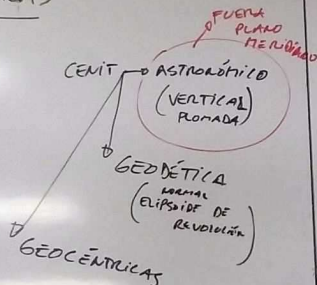 FUERA
PLANO
MERIDIANO
CENIT
ASTRONÓMICO
(VERTICAL)
PLOMADA
GEODÉTICA
(NORMAL
ELIPSOIDE DE
REVOLUCIÓN)
GEOCÉNTRICAS